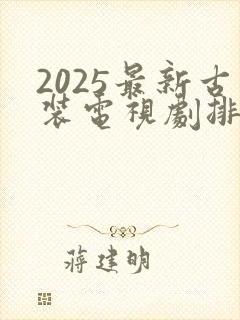 2025最新古
裝電視劇排
蔣建明